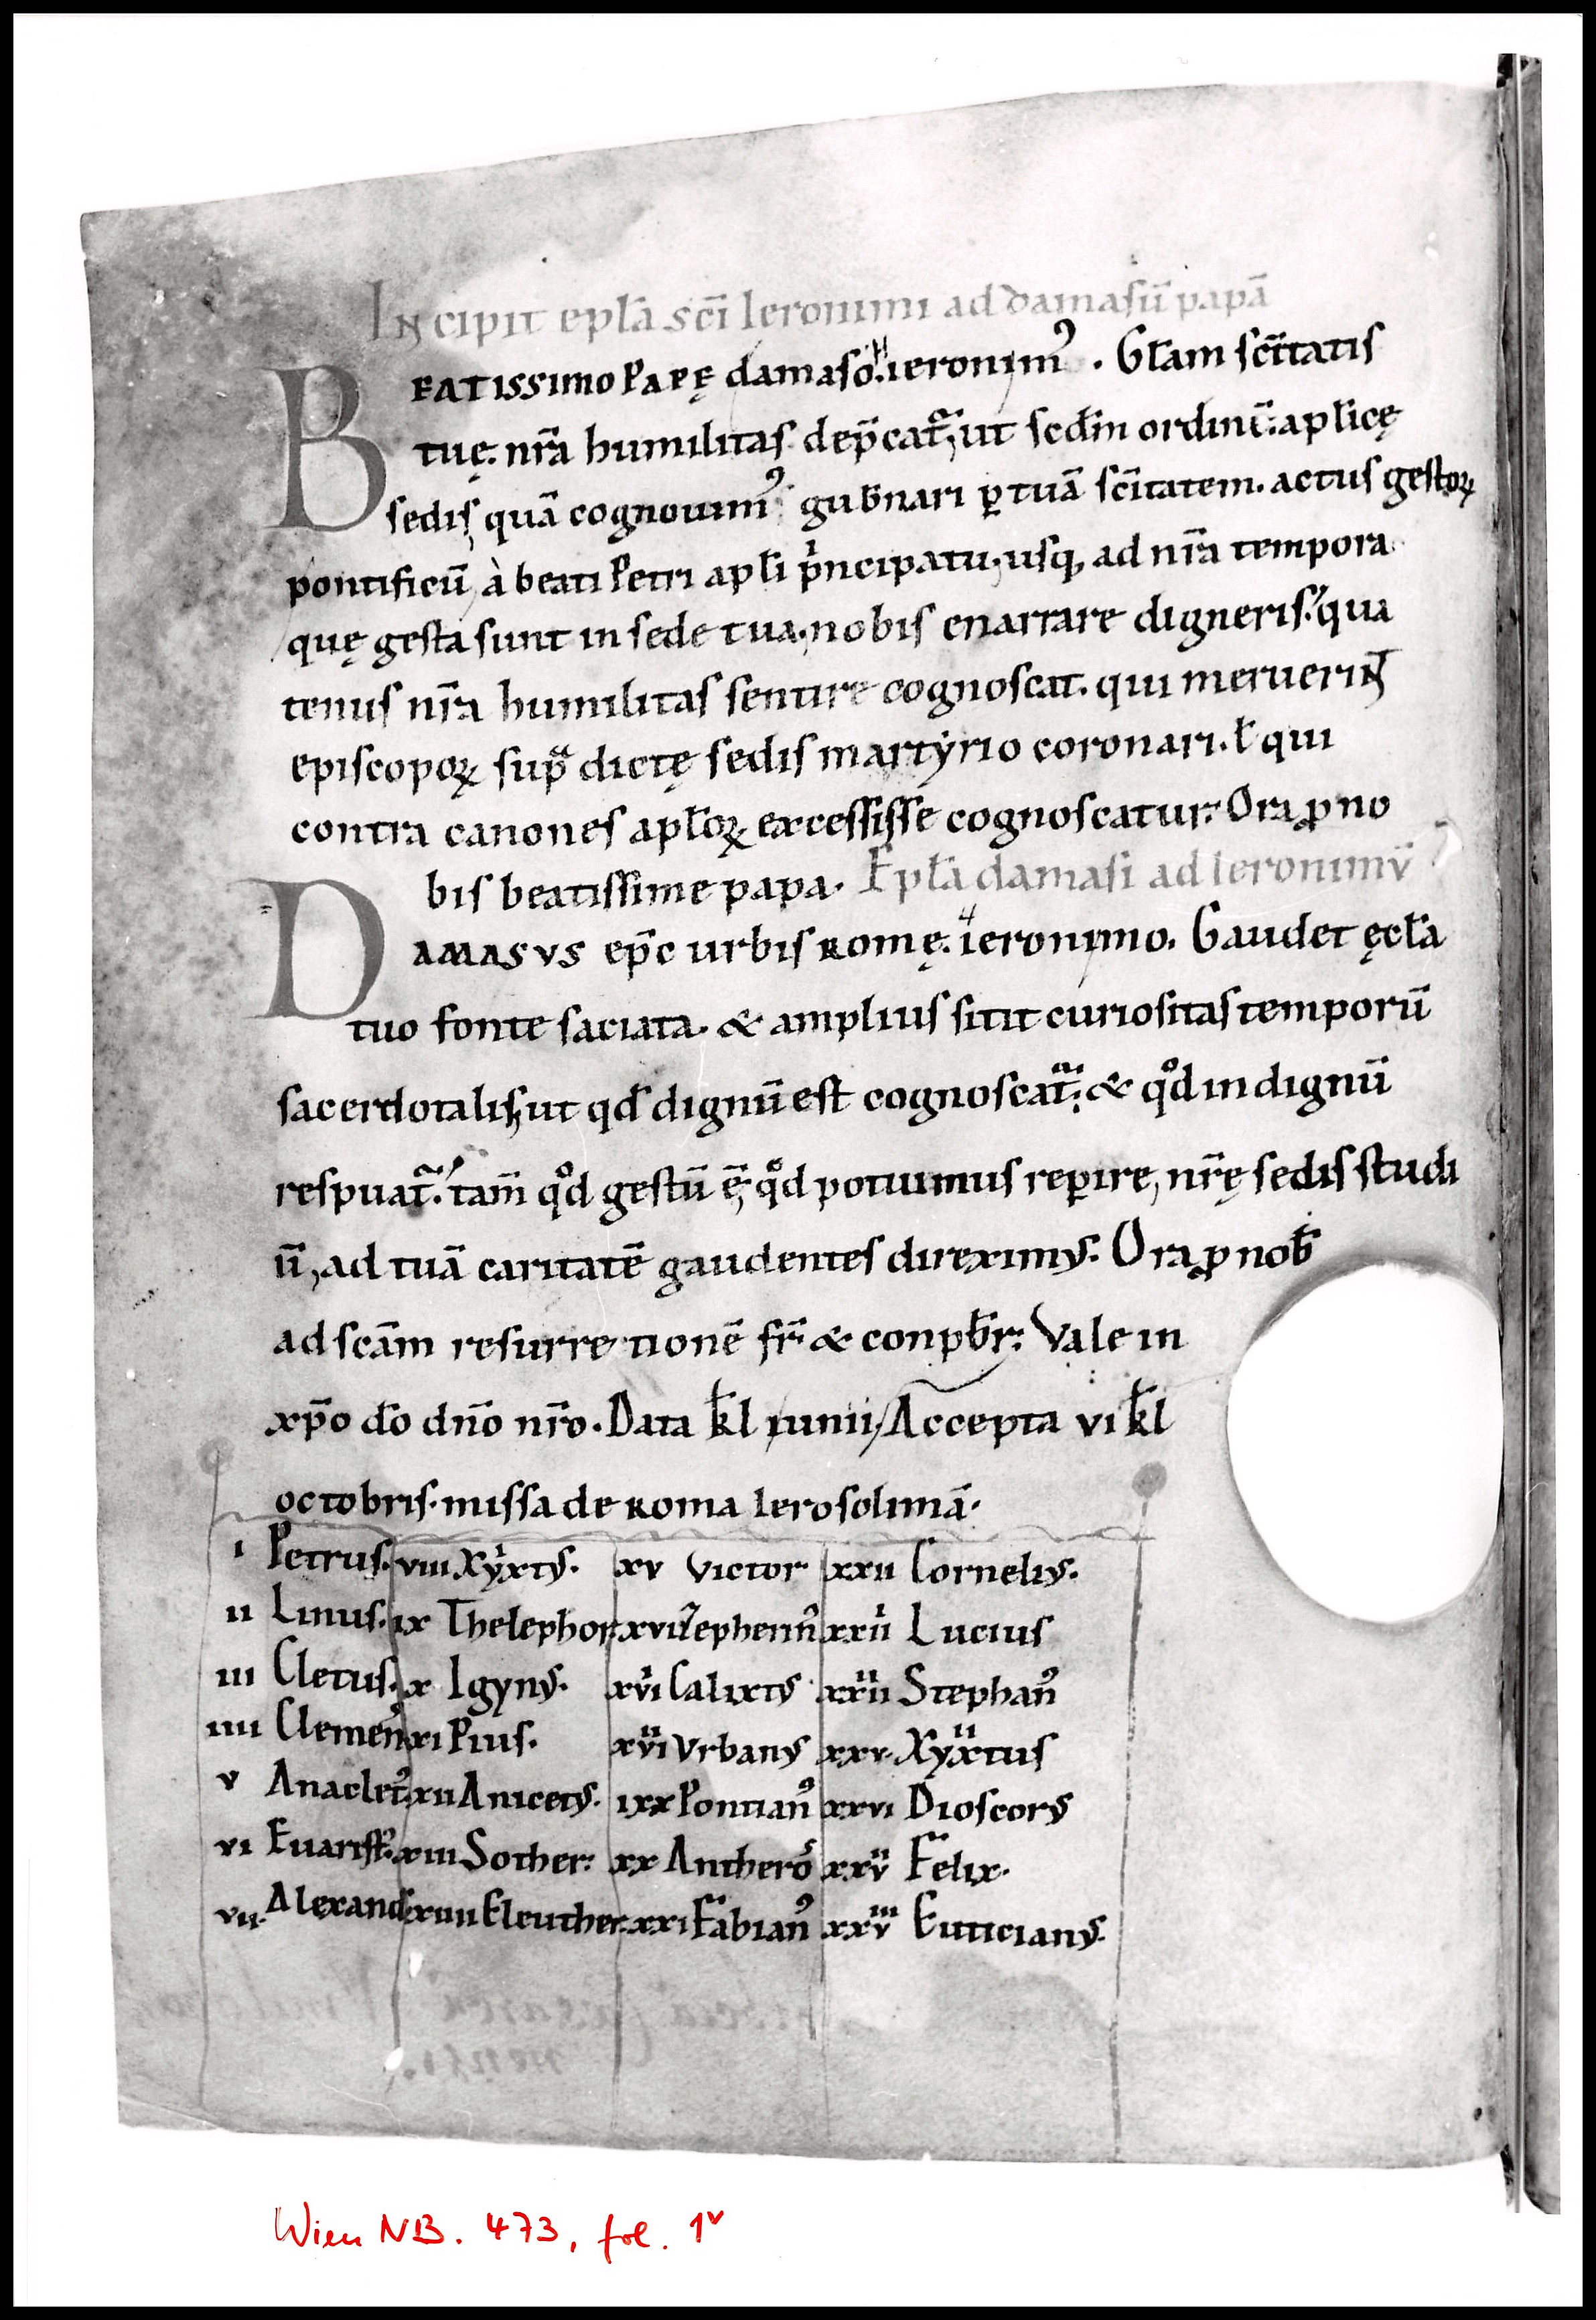 Incipit epła scī Ieronimi ad damasū papā
BEATISSIMO PAPĘ damaso. Hieronimꝰ. Gła̅m scītatis
tuę. nr̄a humilitas dep̄cat᷑, ut scdm̄ ordinē aplicę
sedis, quā cognouimꝰ gub̄nari ꝑ tuā scītatem. actus gestoꝝ
pontificū, à beati Petri apli pⁱncipatu, usq, ad nr̄a tempora.
quę gesta sunt in sede tua, nobis enarrare digneris. qua
tenus nr̄a humilitas sentire cognoscat. qui meruerinт̄
episcopoꝝ supᵃ dictę sedis martyrio coronari. ł qui
contra canones aploꝝ excessisse cognoscatur. Ora ꝓ no
bis beatissime papa. Epła damasi ad Ieronimū
DAMASVS ep̄c urbis Romę. Hieronimo. Gaudet ęcła
tuo fonte saciata. & amplius sitit curiositas temporū
sacerdotalis, ut qd̄ dignū est cognoscat᷑. & qͦd indignū
respuat᷑. tam̄ qͦd gestū ē, qͦd potuimus reꝑire, nr̄ę sedis studi
ū, ad tuā caritatē gaudentes direximꝰ. Ora ꝓ nob̄
ad scām resurrectionē fr̄ & conpb̄r. Vale in
xp̄o dō dn̄o nr̄o. Data kl̄ iunii, Accepta vi kl̄
octobris. missa de Roma Ierosolimā.
i Petrus. viii Xyxtꝰ. xv Victor xxii Corneliꝰ.
ii Linus. ix Thelephor. xvi Zepherinꝰ xxiii Lucius
iii Cletus. x Igynꝰ. xvii Calixtꝰ xxiiii Stephanꝰ
iiii Clemenꝰ xi Pius. xviii Vrbanꝰ xxv. Xyxtus
v Anacletꝰ xii Anicetꝰ. ixx Pontianꝰ xxvi Dioscorꝰ
vi Euaristꝰ. xiii Sother. xx Antheroˢ xxvii Felix.
vii. Alexand xiiii Eleuther. xxi Fabianꝰ xxviii Euticianꝰ.
Wien NB. 473, fol. 1ᵛ